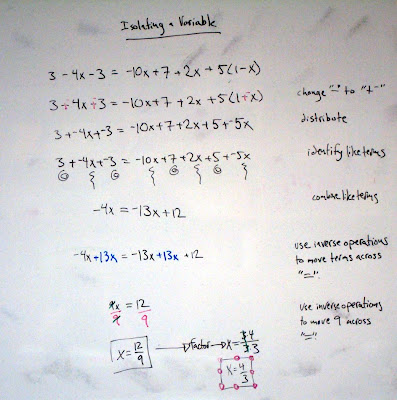 Isolating a Variable
3 - 4x - 3 = -10x + 7 + 2x + 5(1 - x)
3 +- 4x +- 3 = -10x + 7 + 2x + 5(1 +- x)
change "-" to "+-"
3 + -4x + -3 = -10x + 7 + 2x + 5 + -5x
distribute
3 + -4x + -3 = -10x + 7 + 2x + 5 + -5x
identify like terms
-4x = -13x + 12
combine like terms
-4x + 13x = -13x + 13x + 12
use inverse operations
to move terms across
"="
9x/9 = 12/9
use inverse operations
to move 9 across
"="
x = 12/9 → Factor → x = 3·4/3·3
x = 4/3